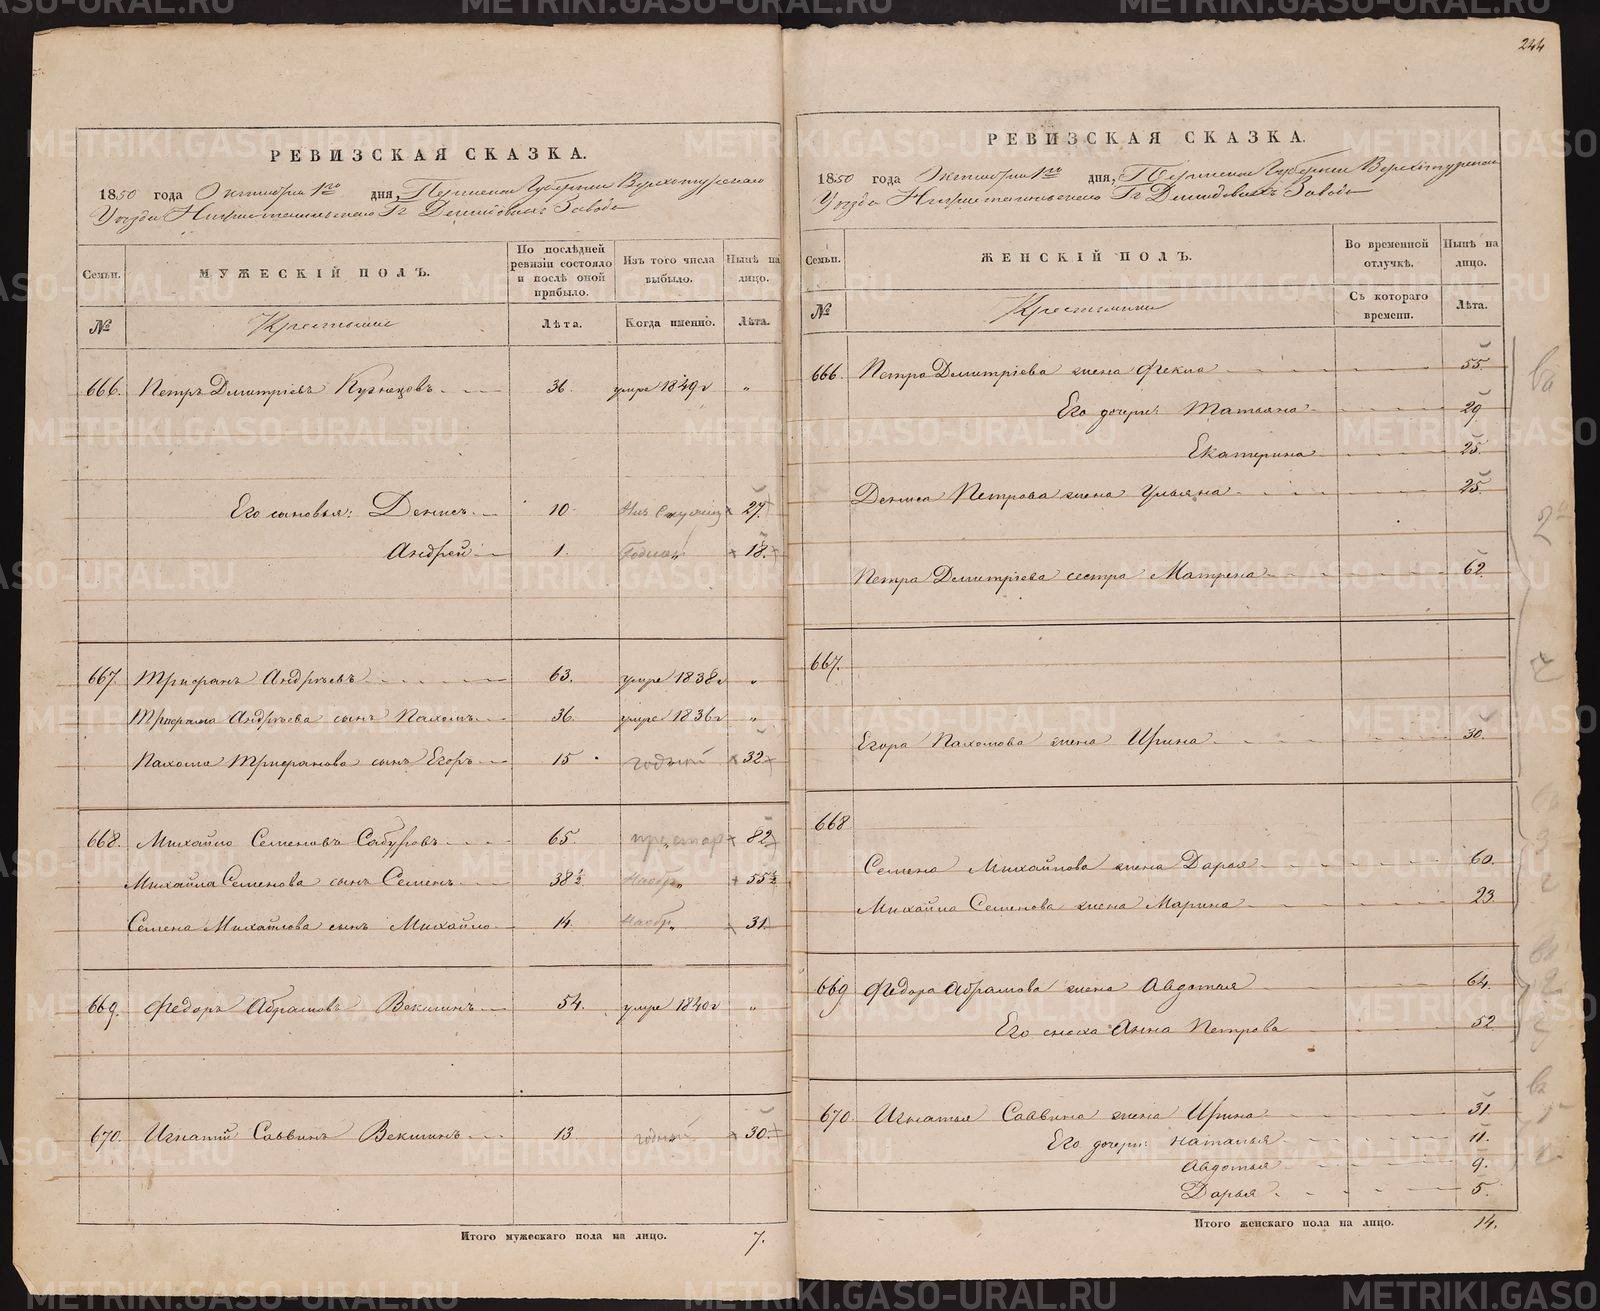 244
РЕВИЗСКАЯ СКАЗКА.
1850 года Октября 1го дня, Пермской Губернии Верхотурскаго
Уезда Нижнетагильскаго Гг Демидовыхъ Завода
Семьи.
МУЖЕСКІЙ ПОЛЪ.
По послѣдней ревизіи состояло и послѣ оной прибыло.
Изъ того числа выбыло.
Нынѣ на лицо.
№
Крестьяне
Лѣта.
Когда именно.
Лѣта.
666. Петръ Дмитріевъ Кузнецовъ 36. умре 1849 г „
Его сыновья: Денисъ 10 27.
Андрей 1. Годная 18.
667. Трифанъ Андреевъ 63. умре 1838 г „
Трифана Андреева сынъ Пахомъ 36. умре 1836 г „
Пахома Трифанова сынъ Егоръ 15 годный 32
668. Михайло Семеновъ Сабуровъ 65. престар 82
Михайла Семенова сынъ Семенъ 38½ Наобр „ 55½
Семена Михайлова сынъ Михайло 14. Наобр „ 31.
669. Федоръ Абрамовъ Векшинъ 54. умре 1840 г „
670. Игнатій Саввинъ Векшинъ 13. годный 30.
Итого мужескаго пола на лицо. 7.
РЕВИЗСКАЯ СКАЗКА.
1850 года Октября 1го дня, Пермской Губернии Верхотурскаго
Уезда Нижнетагильскаго Гг Демидовыхъ Завода
Семьи.
ЖЕНСКІЙ ПОЛЪ.
Во временной отлучкѣ.
Нынѣ на лицо.
№
Крестьянки
Съ котораго времени.
Лѣта.
666. Петра Дмитріева жена Фекла 55.
Его дочери: Татьяна 29
Екатерина 25.
Дениса Петрова жена Ульяна 25.
Петра Дмитріева сестра Матрена 62.
667.
Егора Пахомова жена Ирина 30.
668
Семена Михайлова жена Дарья 60.
Михайла Семенова жена Марина 23
669 Федора Абрамова жена Авдотья 64.
Его сноха Анна Петрова 52
670. Игнатья Саввина жена Ирина 31.
Его дочери: Наталья 11.
Авдотья 9.
Дарья 5.
Итого женскаго пола на лицо. 14.
METRIKI.GASO-URAL.RU